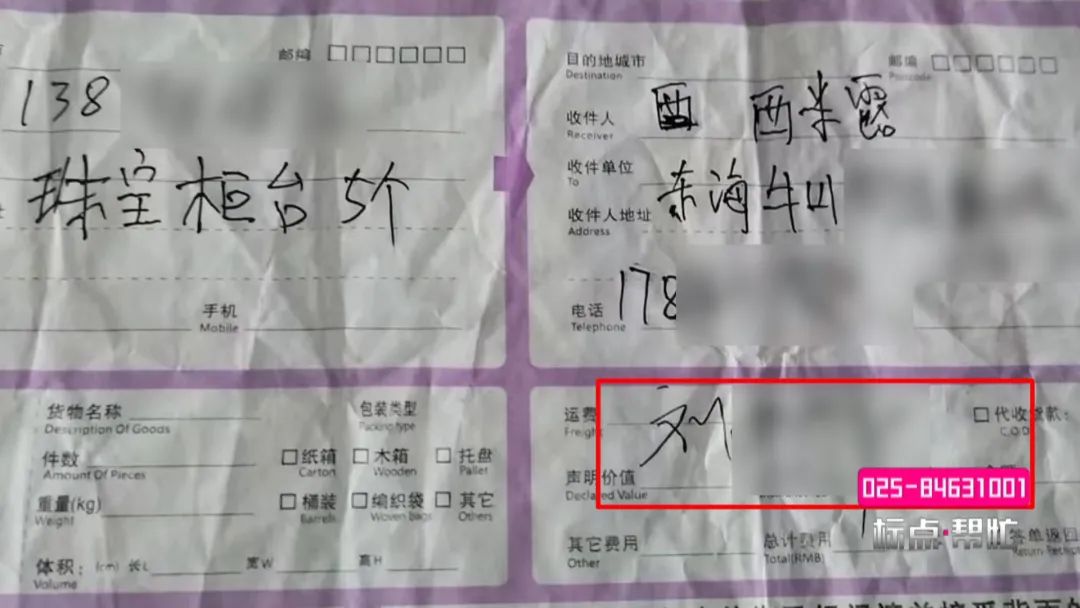 邮编
138
珠宝柜台5个
手机
Mobile
目的地城市
Destination
邮编
Postcode
收件人
Receiver
西米露
收件单位
To
东海牛山
收件人地址
Address
电话
Telephone
178
货物名称
Description Of Goods
包装类型
Packing type
件数
Amount Of Pieces
纸箱
Carton
木箱
Wooden
托盘
Pallet
重量(kg)
Weight
桶装
Barrels
编织袋
Woven Bags
其它
Others
体积:(cm) 长L 宽W 高H
Volume
运费
Freight
刘
代收货款:
C.O.D
声明价值
Declared Value
025-84631001
标点·帮忙
其它费用
Other
总计费用
Total(RMB)
签单返回
Return Receipt